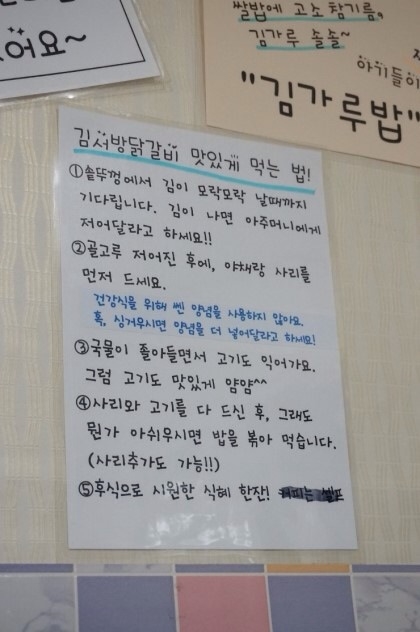 어요~
쌀밥에 고소 참기름。
김가루 솔솔~
아기들이
"김가루밥"
김서방닭갈비 맛있게 먹는 법!
①솥뚜껑에서 김이 모락모락 날때까지
기다립니다. 김이 나면 아주머니에게
저어달라고 하세요!!
②골고루 저어진 후에, 야채랑 사리를
먼저 드세요.
건강식을 위해 쎈 양념을 사용하지 않아요.
혹, 싱거우시면 양념을 더 넣어달라고 하세요!
③국물이 졸아들면서 고기도 익어가요.
그럼 고기도 맛있게 얌얌^^
④사리와 고기를 다 드신 후, 그래도
뭔가 아쉬우시면 밥을 볶아 먹습니다.
(사리추가도 가능!!)
⑤후식으로 시원한 식혜 한잔!